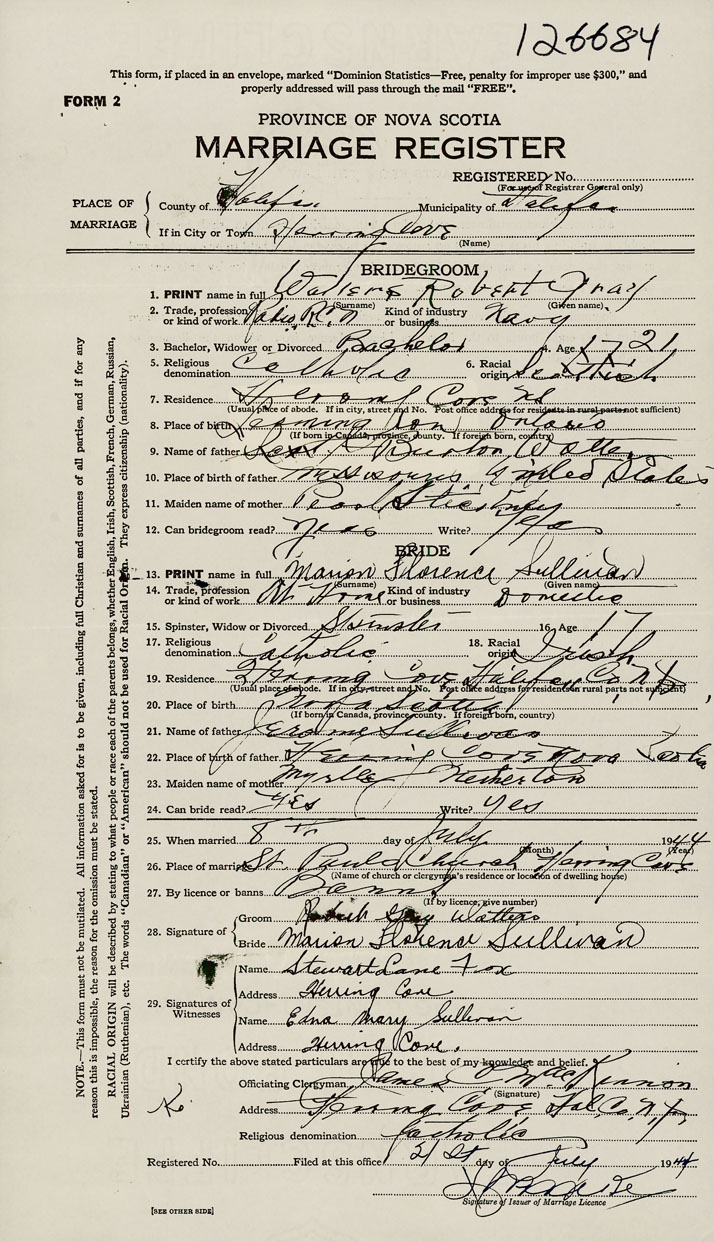 126684
This form, if placed in an envelope, marked "Dominion Statistics—Free, penalty for improper use $300," and
properly addressed will pass through the mail "FREE".
FORM 2
PROVINCE OF NOVA SCOTIA
MARRIAGE REGISTER
REGISTERED No.
(For use of Registrar General only)
PLACE OF MARRIAGE
County of Halifax Municipality of Halifax
If in City or Town Herring Cove
(Name)
BRIDEGROOM
1. PRINT name in full Robert Gray
(Surname) (Given name)
2. Trade, profession or kind of work Radio Kind of industry or business Navy
3. Bachelor, Widower or Divorced Bachelor 4. Age 21
5. Religious denomination Catholic 6. Racial origin Scottish
7. Residence Cove NS
(Usual place of abode. If in city, street and No. Post office address for residents in rural parts not sufficient)
8. Place of birth Ontario
(If born in Canada, province, county. If foreign born, country)
9. Name of father
10. Place of birth of father Missouri, United States
11. Maiden name of mother Pearl
12. Can bridegroom read? Yes Write? Yes
BRIDE
13. PRINT name in full Marion Florence Sullivan
(Surname) (Given name)
14. Trade, profession or kind of work At Home Kind of industry or business Domestic
15. Spinster, Widow or Divorced Spinster 16. Age 17
17. Religious denomination Catholic 18. Racial origin Irish
19. Residence Herring Cove Halifax Co. N.S.
(Usual place of abode. If in city, street and No. Post office address for residents in rural parts not sufficient)
20. Place of birth Nova Scotia
(If born in Canada, province, county. If foreign born, country)
21. Name of father Jerome Sullivan
22. Place of birth of father Herring Cove Nova Scotia
23. Maiden name of mother Myrtle Netherton
24. Can bride read? Yes Write? Yes
25. When married 8th day of July 1944
(Month) (Year)
26. Place of marriage St. Pauls Church Herring Cove
(Name of church or clergyman's residence or location of dwelling house)
27. By licence or banns Banns
(If by licence, give number)
28. Signature of
Groom Gray Watters
Bride Marion Florence Sullivan
29. Signatures of Witnesses
Name Stewart Lane Fox
Address Herring Cove
Name Edna Mary Sullivan
Address Herring Cove.
I certify the above stated particulars are true to the best of my knowledge and belief.
Officiating Clergyman James MacKinnon
(Signature)
Address Herring Cove Hal. Co. N.S.
Religious denomination Catholic
Registered No. Filed at this office 21st day of July 1944
Signature of Issuer of Marriage Licence
[SEE OTHER SIDE]
NOTE.—This form must not be mutilated. All information asked for is to be given, including full Christian and surnames of all parties, and if for any
reason this is impossible, the reason for the omission must be stated.
RACIAL ORIGIN will be described by stating to what people or race each of the parents belongs, whether English, Irish, Scottish, French, German, Russian,
Ukrainian (Ruthenian), etc. The words "Canadian" or "American" should not be used for Racial Origin. They express citizenship (nationality).